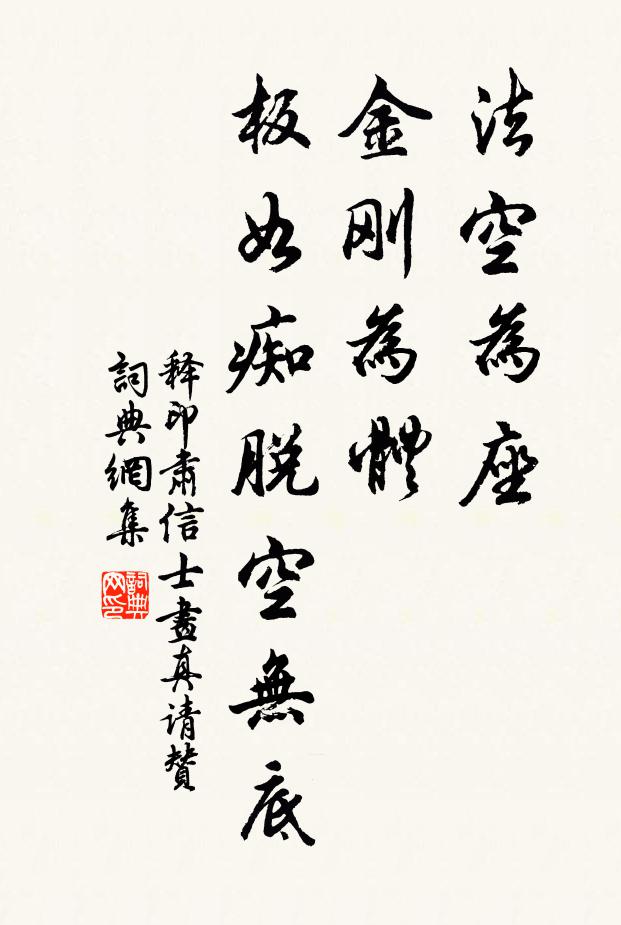 法空為座
金刚為體
板如痴脱空無底
释印肅信士畫真请贊
詞典網集
詞典
网印